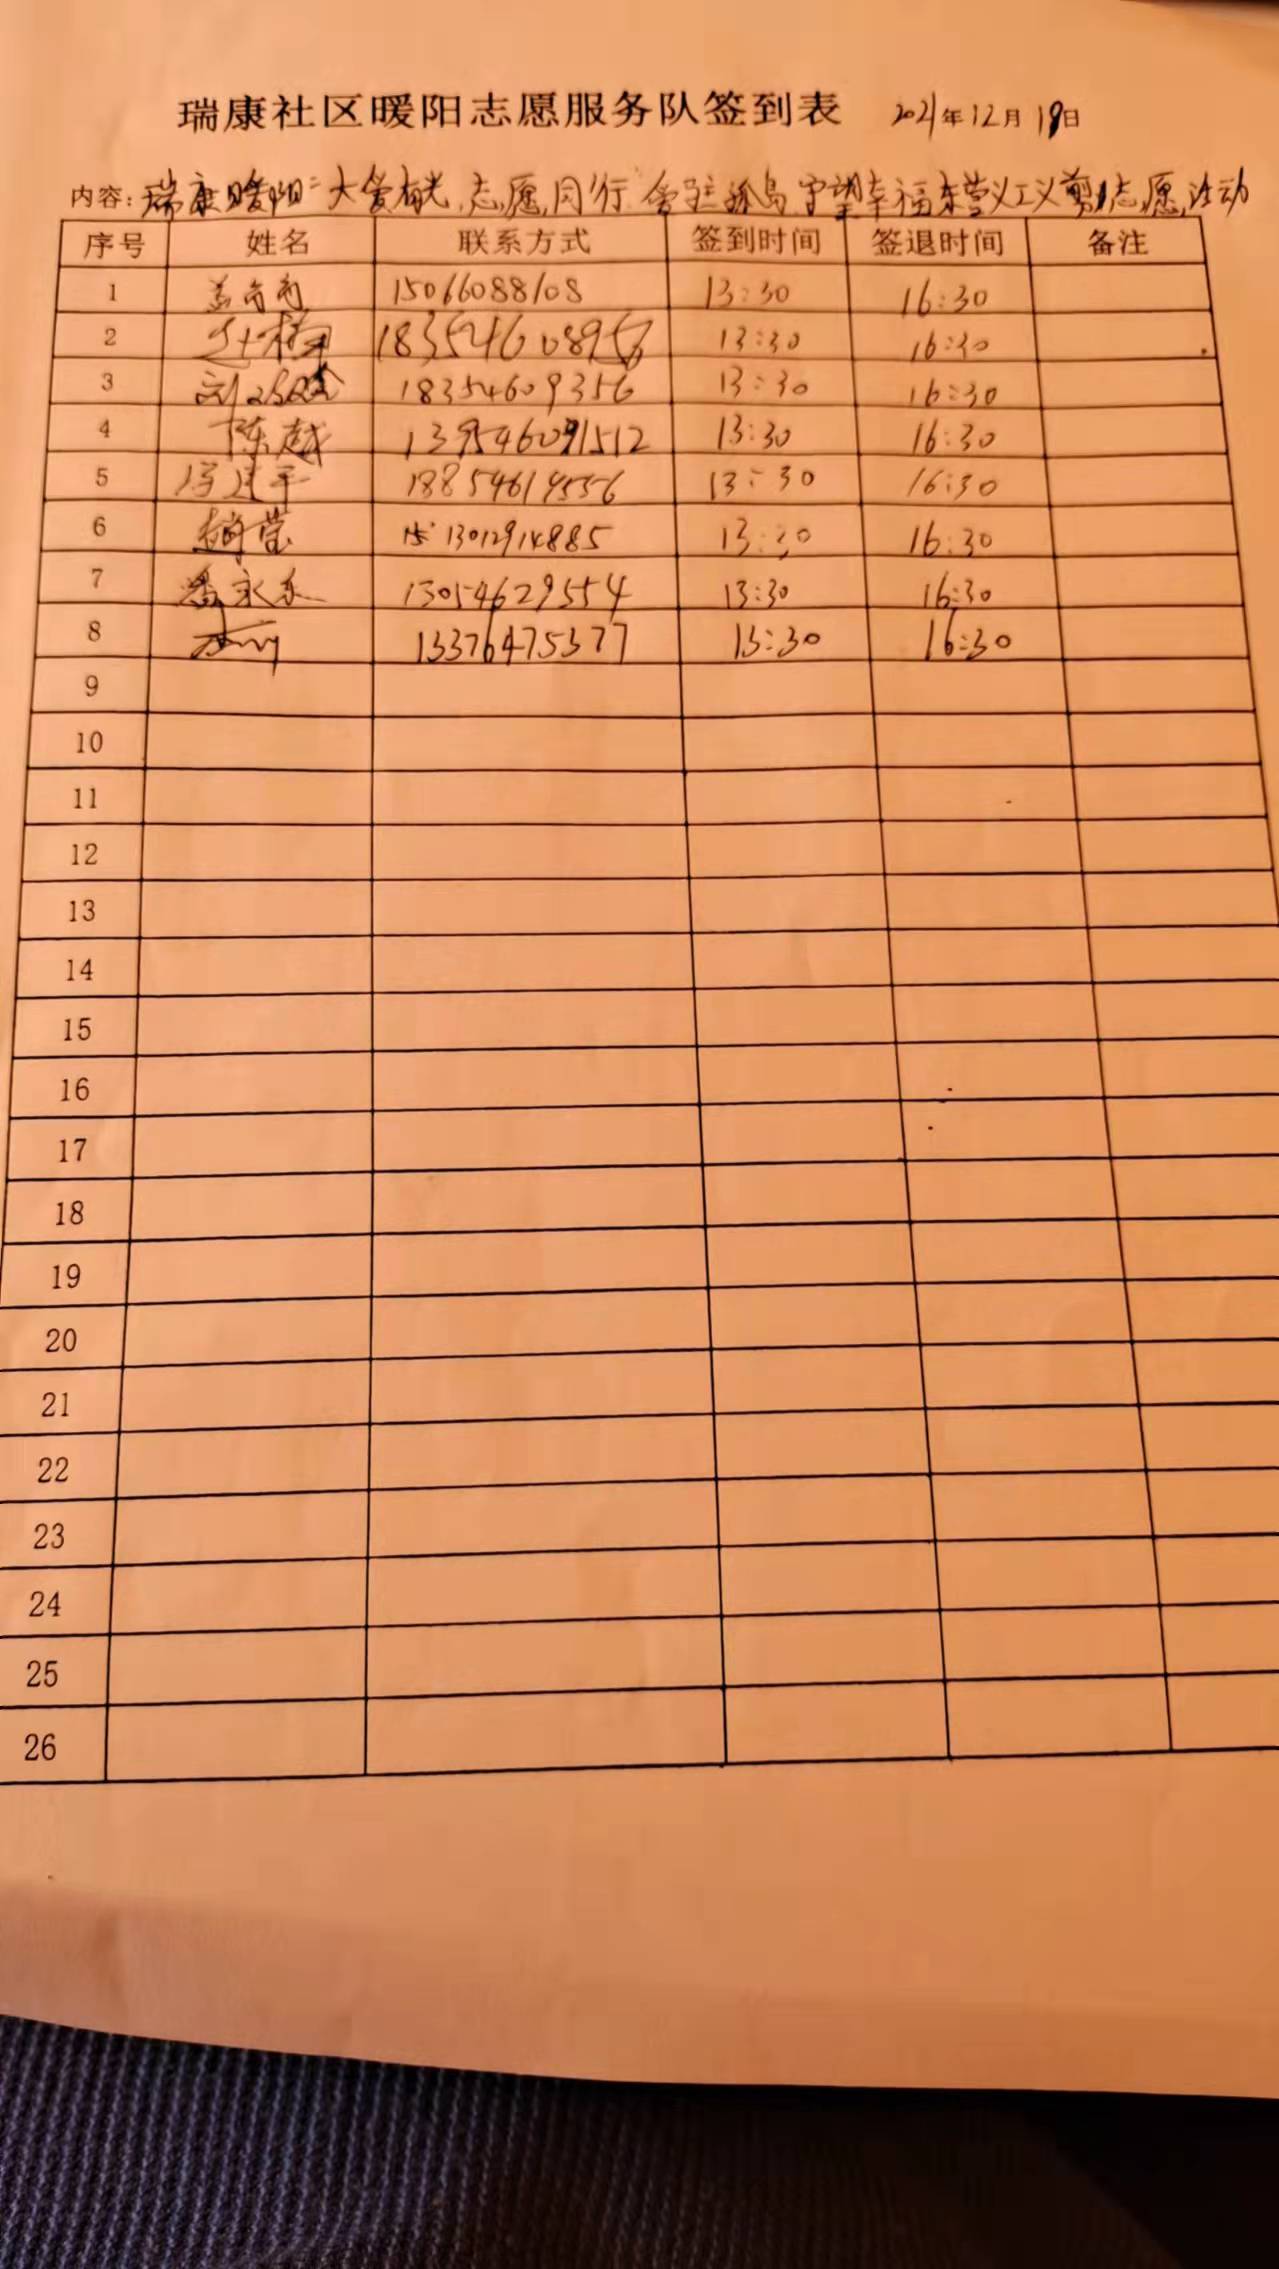 瑞康社区暖阳志愿服务队签到表 2021年12月19日
内容：瑞康暖阳"大爱有光.志愿同行.守望幸福东营义工义剪志愿活动
序号 姓名 联系方式 签到时间 签退时间 备注
1 15066088108 13:30 16:30
2 13:30 16:30
3 18354609356 13:30 16:30
4 陈越 13:30 16:30
5 13:30 16:30
6 13012914885 13:30 16:30
7 13054629554 13:30 16:30
8 13376475377 13:30 16:30
9
10
11
12
13
14
15
16
17
18
19
20
21
22
23
24
25
26